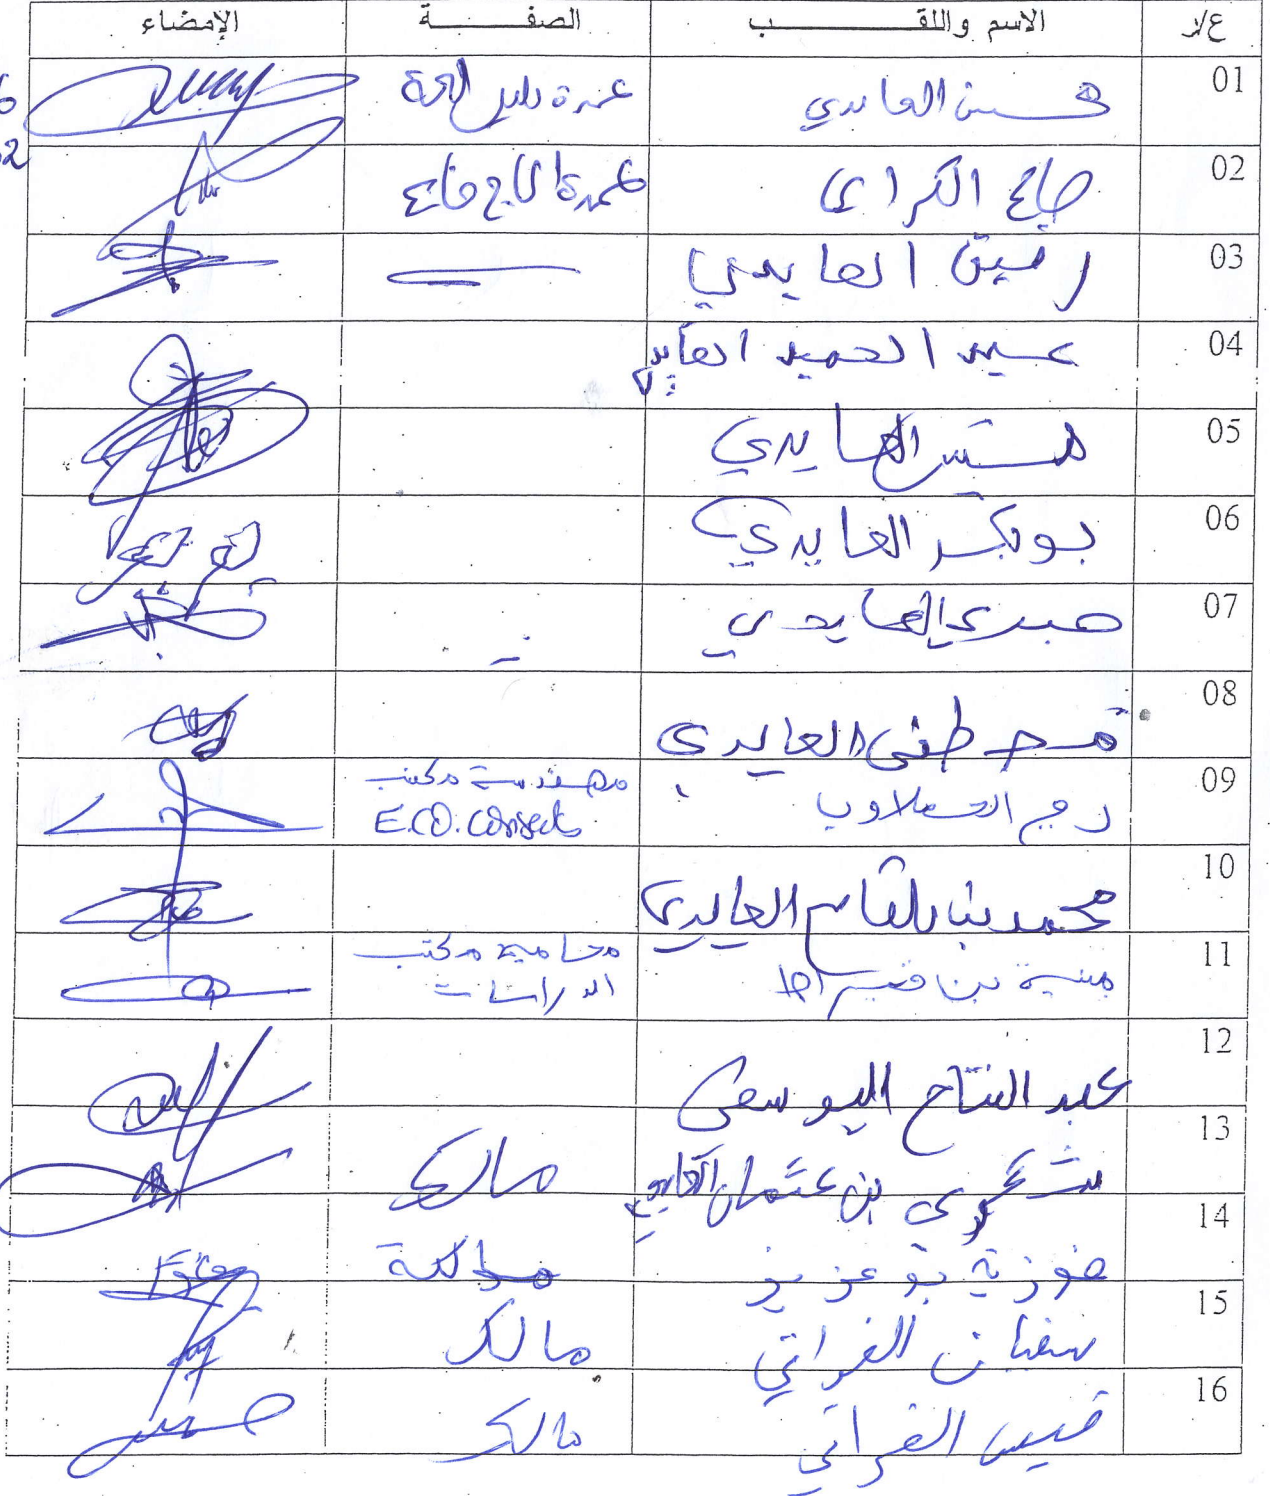 ع/ر الاسم واللقب الصفة الإمضاء
01 حسين العايدي عمدة
02 الكراي عمدة الحاج قاسم
03 رفيق العايدي
04 عبد الحميد العايدي
05 العايدي
06 بوبكر العايدي
07 صبري العايدي
08 مصطفى العايدي
09 ريم مهندسة مكتب
E.CO. Conseils
10 محمد بن بلقاسم العايدي
11 منية بن محامية مكتب
الدراسات
12 عبد الفتاح اليوسفي
13 شكري بن عثمان العايدي مالك
14 فوزية بوعزيز مالكة
15 سفيان الفراتي مالك
16 قيس الفراتي مالك